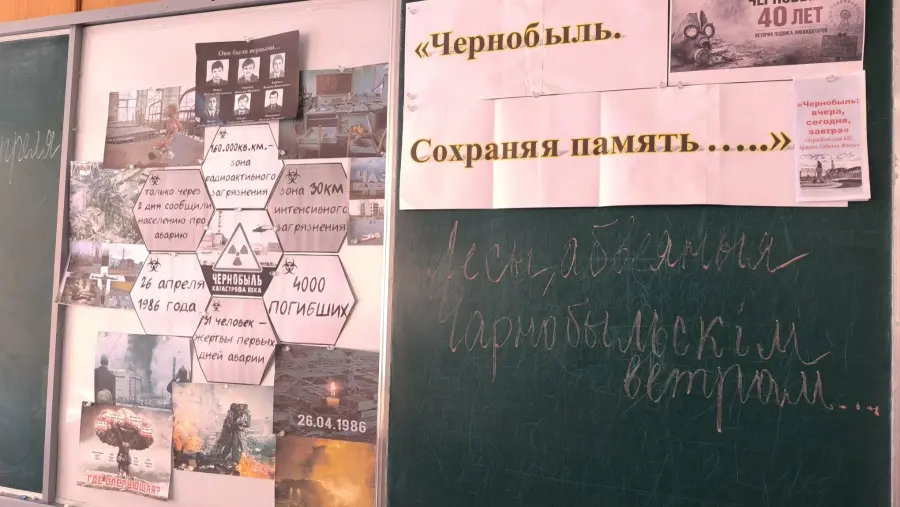 преля
Они были первыми...
160.000кв.км.-
зона
радиоактивного
загрязнения
только через
2 дня сообщили
населению про
аварию
зона 30км
интенсивного
загрязнения
ЧЕРНОБЫЛЬ
КАТАСТРОФА ВЕКА
26 апреля
1986 года
4000
погибших
31 человек –
жертвы первых
дней аварии
26.04.1986
ГДЕ СЛЕДУЮЩАЯ?
«Чернобыль.
Сохраняя память …..»
40 ЛЕТ
ИСТОРИЯ ПОДВИГА ЛИКВИДАТОРОВ
«Чернобыль:
вчера,
сегодня,
завтра»
Лёсы, абвеяныя
Чарнобыльскім
ветрам...